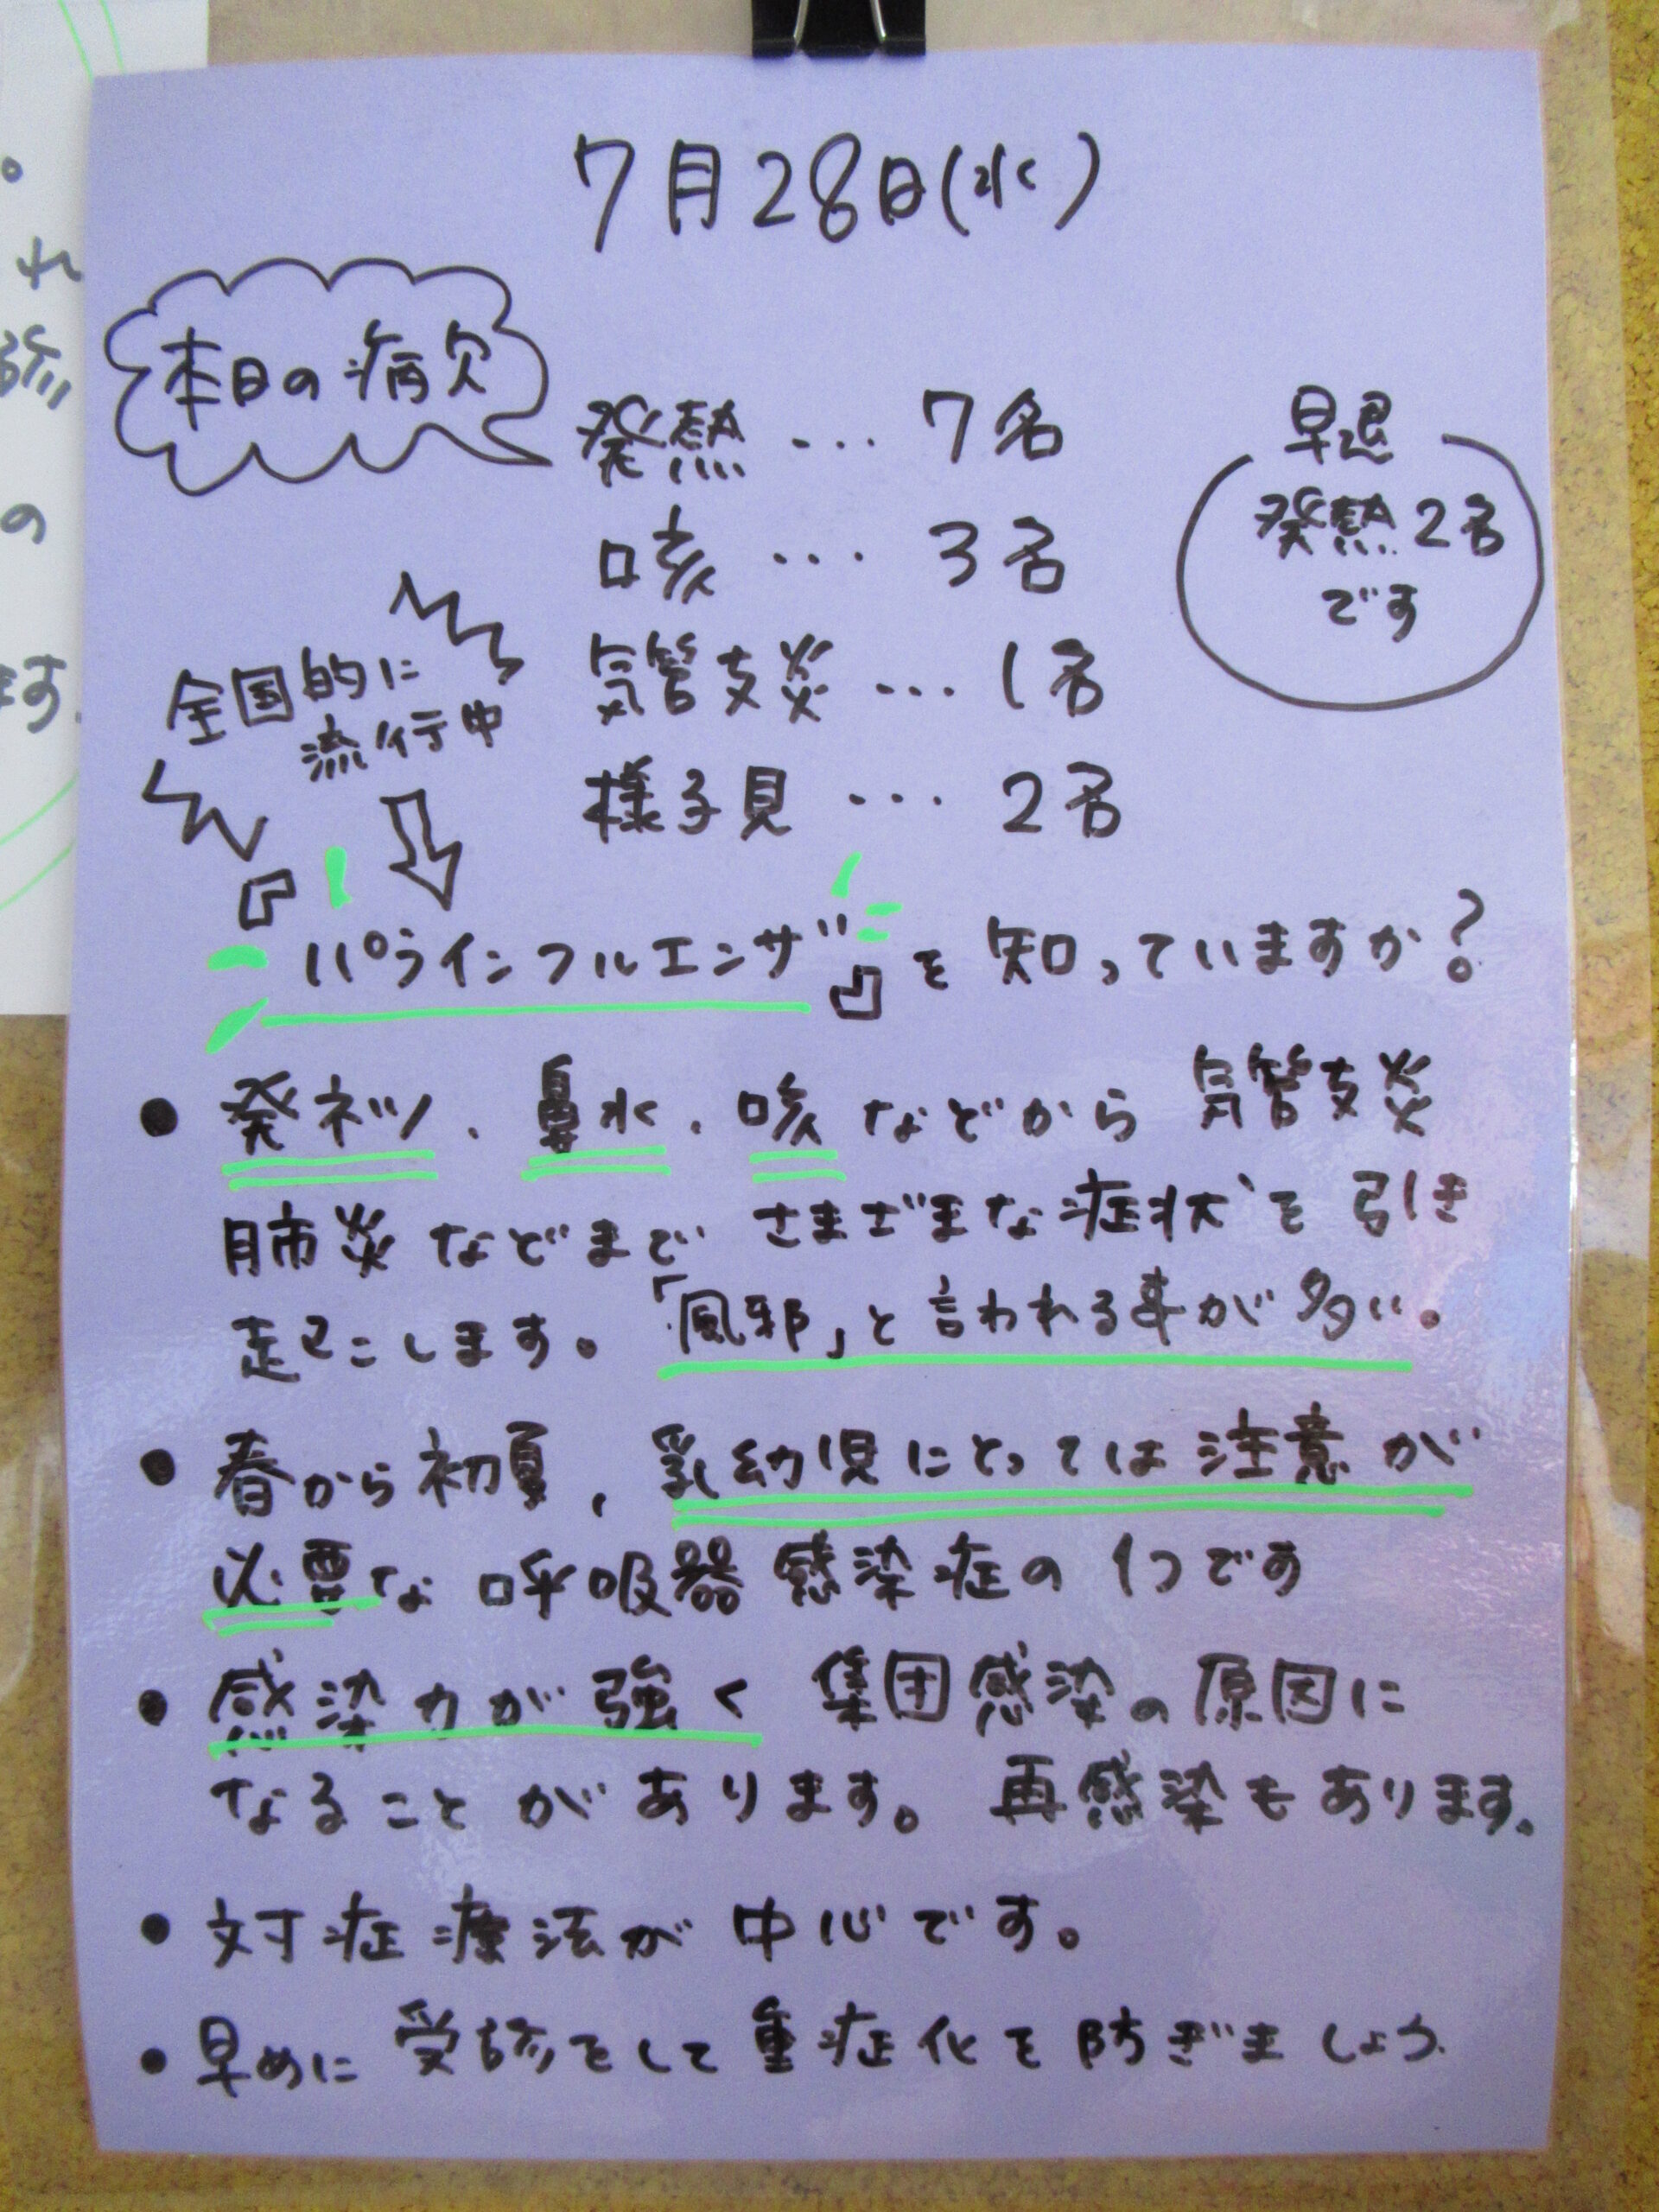 7月28日(水)
本日の病欠
発熱 ... 7名
咳 ... 3名
気管支炎 ... 1名
様子見 ... 2名
早退
発熱2名
です
全国的に
流行中
『パラインフルエンザ』を知っていますか?
● 発ネツ、鼻水、咳などから気管支炎
肺炎などまでさまざまな症状を引き
起こします。「風邪」と言われる事が多い。
● 春から初夏、乳幼児にとっては注意が
必要な呼吸器感染症の1つです
● 感染力が強く集団感染の原因に
なることがあります。再感染もあります。
● 対症療法が中心です。
● 早めに受診をして重症化を防ぎましょう。
れ
の
ます。